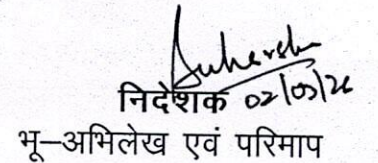 निदेशक 02/05/26
भू-अभिलेख एवं परिमाप